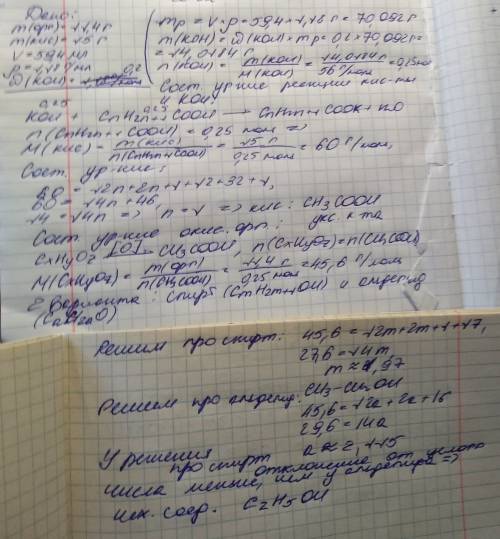 Дано:
m(орг) = 11,4 г
m(кис) = 15 г
V = 59,4 мл
ρ = 1,18 г/мл
ω(KOH) = 0,2
mр = V × ρ = 59,4 × 1,18 г = 70,092 г
m(KOH) = ω(KOH) × mр = 0,2 × 70,092 г =
= 14,0184 г
n(KOH) = m(KOH) / M(KOH) = 14,0184 г / 56 г/моль = 0,25 моль
Сост. ур-ние реакции кис-ты
и KOH:
0,25 0,25
KOH + CnH2n+1COOH → CnH2n+1COOK + H2O
n(CnH2n+1COOH) = 0,25 моль =>
M(кис) = m(кис) / n(CnH2n+1COOH) = 15 г / 0,25 моль = 60 г/моль,
Сост. ур-ние:
60 = 12n + 2n + 1 + 12 + 32 + 1,
60 = 14n + 46,
14 = 14n => n = 1 => кис: CH3COOH
укс. к-та
Сост. ур-ние окис. орг.:
CxHyOz [O]→ CH3COOH, n(CxHyOz) = n(CH3COOH)
M(CxHyOz) = m(орг) / n(CH3COOH) = 11,4 г / 0,25 моль = 45,6 г/моль
2 варианта: спирт (CmH2m+1OH) и альдегид
(CaH2aO)
Решим про спирт: 45,6 = 12m + 2m + 1 + 17,
27,6 = 14m,
m ≈ 1,97
CH3-CH2OH
Решим про альдегид: 45,6 = 12a + 2a + 16
29,6 = 14a
a ≈ 2,115
У решения
про спирт отклонение от целого
числа меньше, чем у альдегида =>
исх. соед. C2H5OH